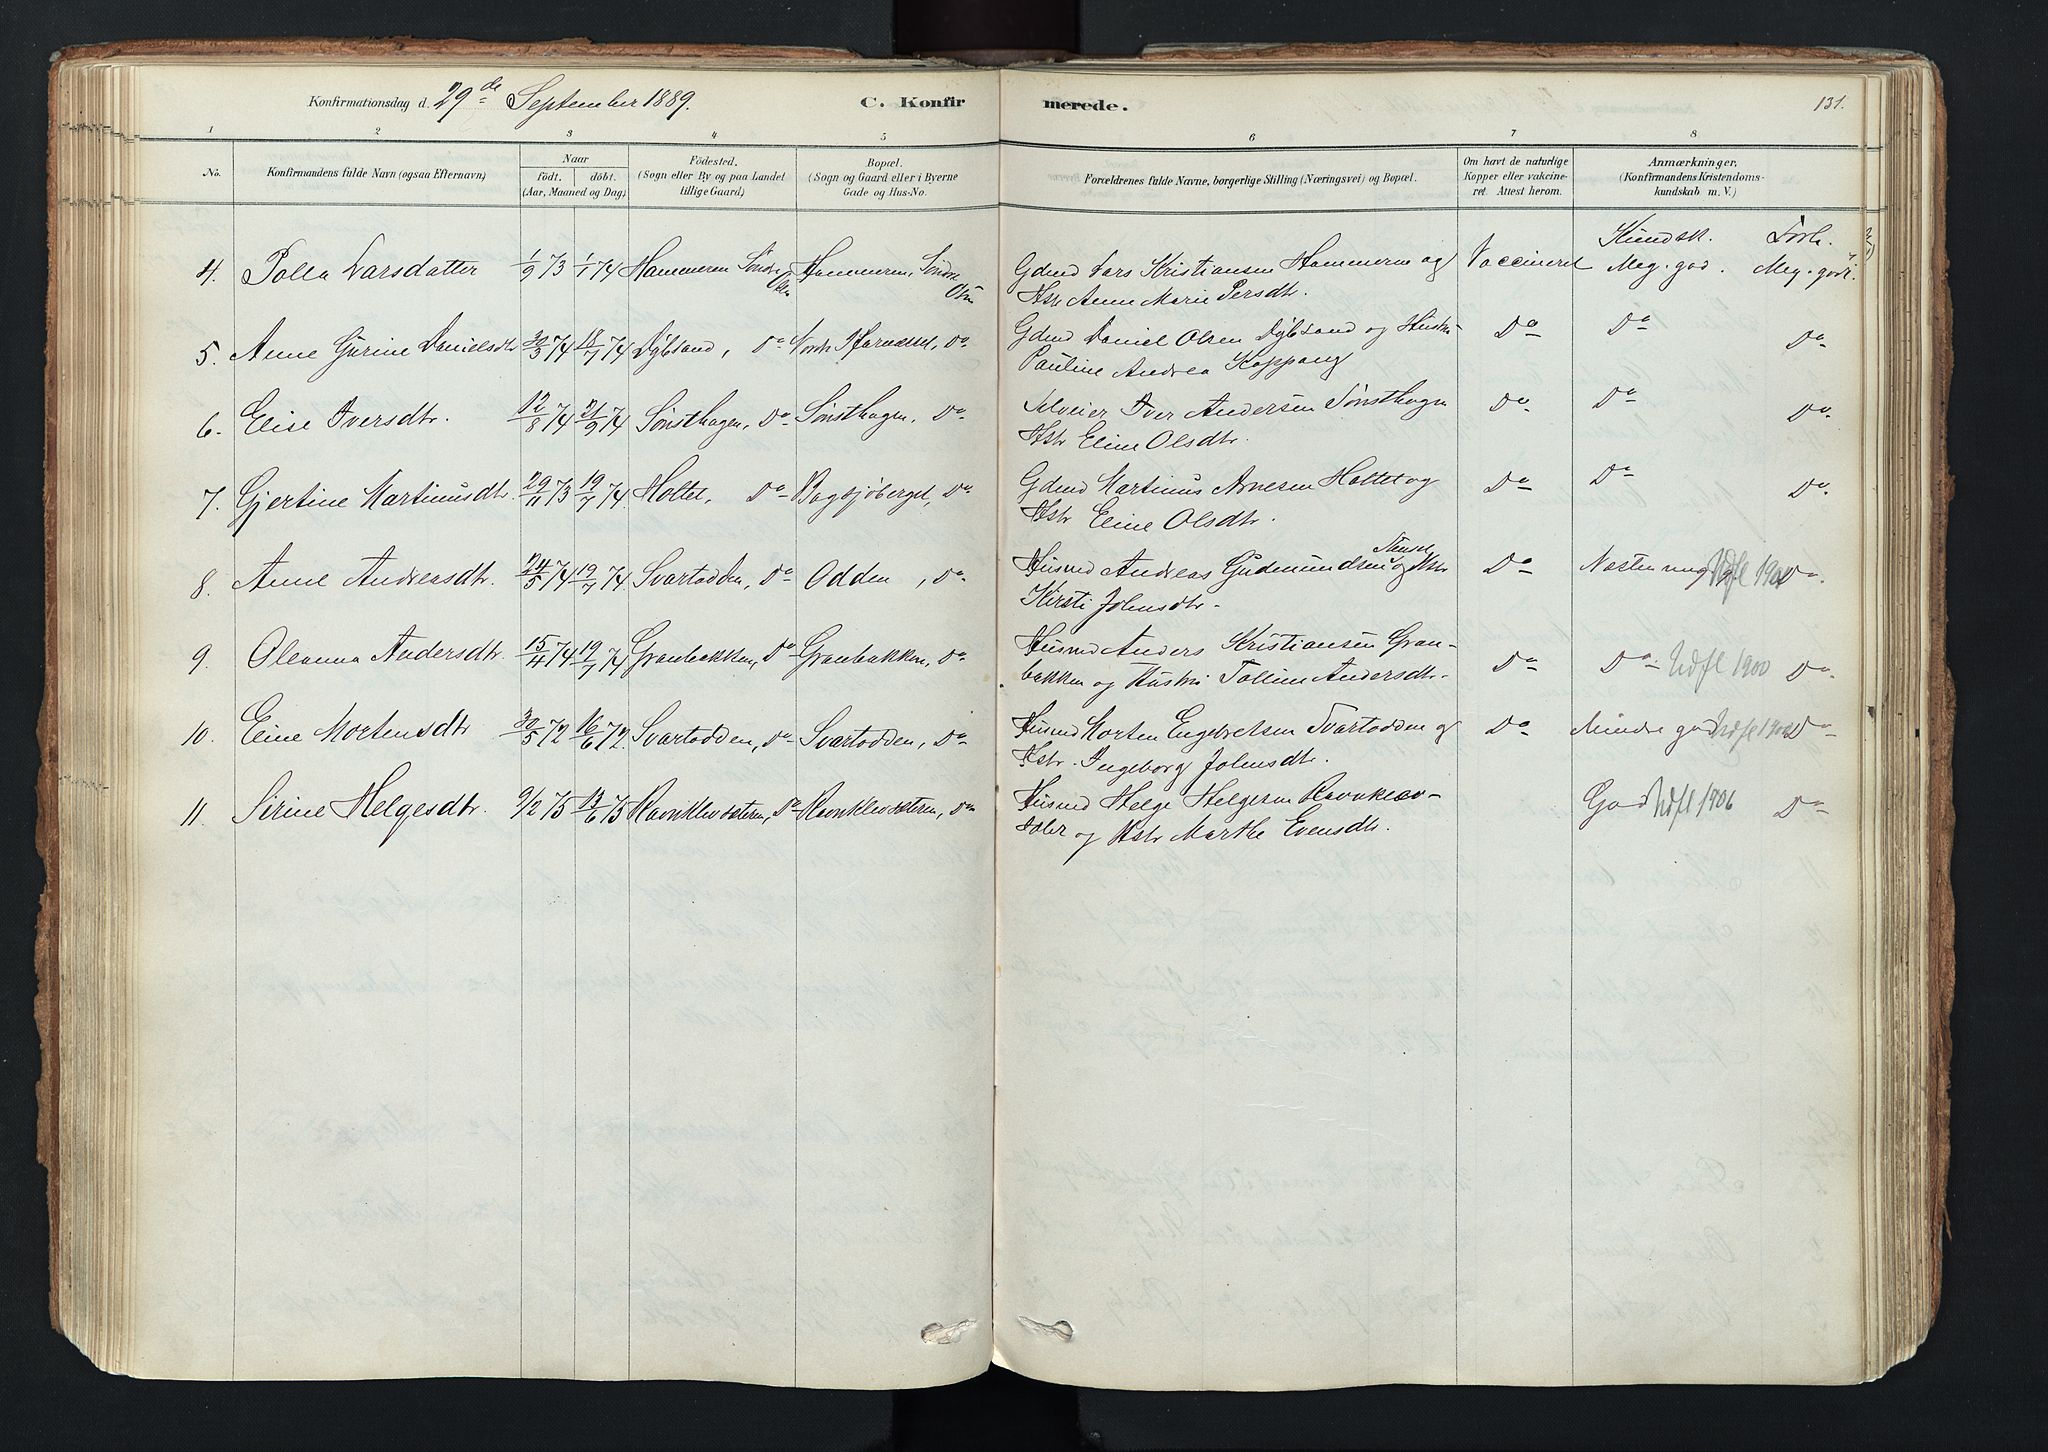 Konfirmationsdag d. 29de September 1889. C. Konfirmerede. 131.
1 2 3 4 5 6 7 8
No. Konfirmandens fulde Navn (ogsaa Efternavn) Naar födt. döbt. (Aar, Maaned og Dag) Födested. (Sogn eller By og paa Landet tillige Gaard) Bopæl. (Sogn og Gaard eller i Byerne Gade og Hus-No. Forældrenes fulde Navne, borgerlige Stilling (Næringsvei) og Bopæl. Om havt de naturlige Kopper eller vakcineret. Attest herom. Anmærkninger. (Konfirmandens Kristendomskundskab m. V.)
Kundsk. Forh.
4. Polla Larsdatter 1/9 73 1/1 74 Hammeren Søndre Osen Hammeren, Søndre Osen Gdmd Lars Kristiansen Hammeren og Vaccineret Meg. god. Meg. godt.
Hstr Anne Marie Persdtr.
5. Anne Gurine Danielsdtr 30/3 74 18/7 74 Dybsand, Do Nordr. Do Gdmd Daniel Olsen Dybsand og Hustru Do Do Do
Pauline Andrea Koppang
6. Elise Iversdtr. 12/8 74 21/9 74 Sønsthagen, Do Sønsthagen, Do Selveier Iver Andersen Sønsthagen Do Do Do
Hstr Eline Olsdtr.
7. Gjertine Martinusdtr. 29/11 73 19/7 74 Holtet, Do Bagsjøberget, Do Gdmd Martinus Arnesen Holtet og Do Do Do
Hstr Eline Olsdtr.
8. Anne Andreasdtr. 24/5 74 19/7 74 Svartodden, Do Odden, Do Husmd Andreas Gudmundsen og Hstr Do Næsten meg g Udfl 1900 Do
Kirsti Johnsdtr.
9. Oleanna Andersdtr. 15/4 74 19/7 74 Granbakken, Do Granbakken, Do Husmd Anders Kristiansen Gran-
bakken og Hustru Tolline Andersdtr. Do Do Udfl 1900 Do
10. Eline Mortensdtr 30/5 72 16/6 72 Svartodden, Do Svartodden, Do Husmd Morten Engebretsen Svartodden og Do Mindre god Udfl 1900 Do
Hstr. Ingeborg Johnsdtr.
11. Sirine Helgesdtr. 9/2 75 13/6 75 Ravnklevsæteren, Do Ravnklevsæteren, Do Husmd Helge Helgesen Ravnklev-
sæter og Hstr Marthe Evensdtr. God Udfl 1906 Do